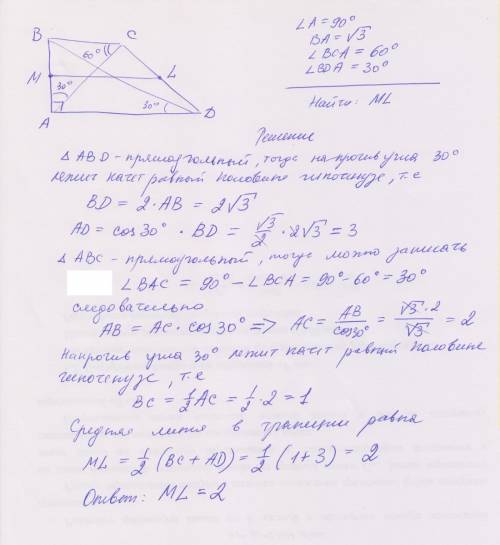 B
C
60°
M
L
30°
30°
A
D
∠A = 90°
BA = √3
∠BCA = 60°
∠BDA = 30°
Найти: ML
Решение
△ ABD - прямоугольный, тогда напротив угла 30°
лежит катет равный половине гипотенузе, т.е
BD = 2 · AB = 2√3
AD = cos 30° · BD = √3/2 · 2√3 = 3
△ ABC - прямоугольный, тогда можно записать
∠BAC = 90° - ∠BCA = 90° - 60° = 30°
следовательно
AB = AC · cos 30° => AC = AB/cos30° = √3 · 2/√3 = 2
Напротив угла 30° лежит катет равный половине
гипотенузе, т.е
BC = 1/2 AC = 1/2 · 2 = 1
Средняя линия в трапеции равна
ML = 1/2 (BC + AD) = 1/2 (1 + 3) = 2
Ответ: ML = 2